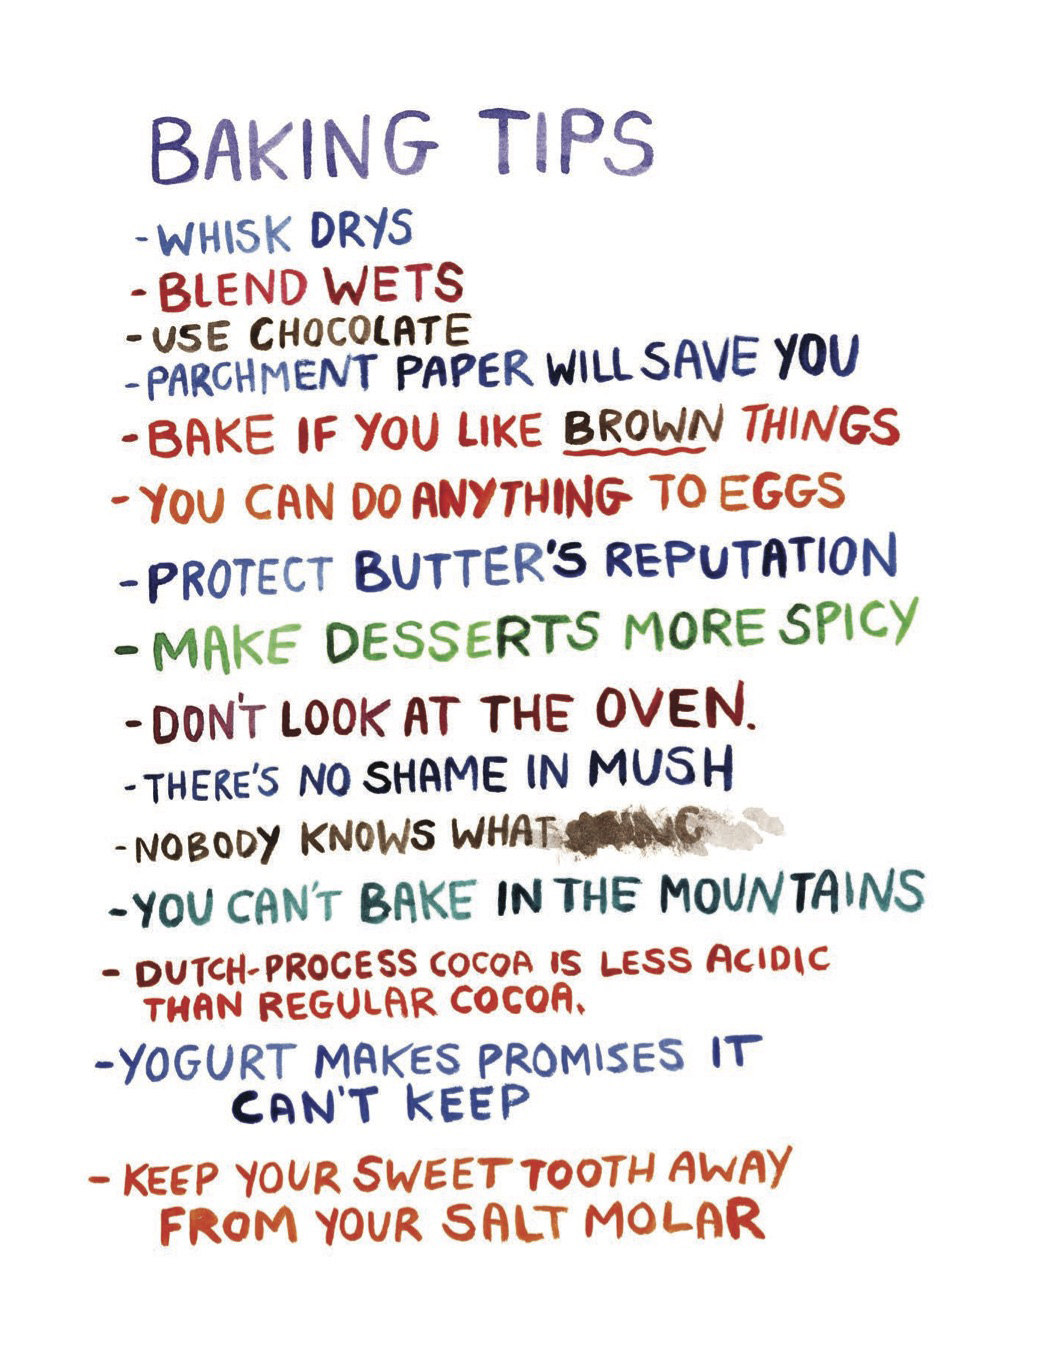 BAKING TIPS
- WHISK DRYS
- BLEND WETS
- USE CHOCOLATE
- PARCHMENT PAPER WILL SAVE YOU
- BAKE IF YOU LIKE BROWN THINGS
- YOU CAN DO ANYTHING TO EGGS
- PROTECT BUTTER'S REPUTATION
- MAKE DESSERTS MORE SPICY
- DON'T LOOK AT THE OVEN.
- THERE'S NO SHAME IN MUSH
- NOBODY KNOWS WHAT
- YOU CAN'T BAKE IN THE MOUNTAINS
- DUTCH-PROCESS COCOA IS LESS ACIDIC
THAN REGULAR COCOA.
- YOGURT MAKES PROMISES IT
CAN'T KEEP
- KEEP YOUR SWEET TOOTH AWAY
FROM YOUR SALT MOLAR